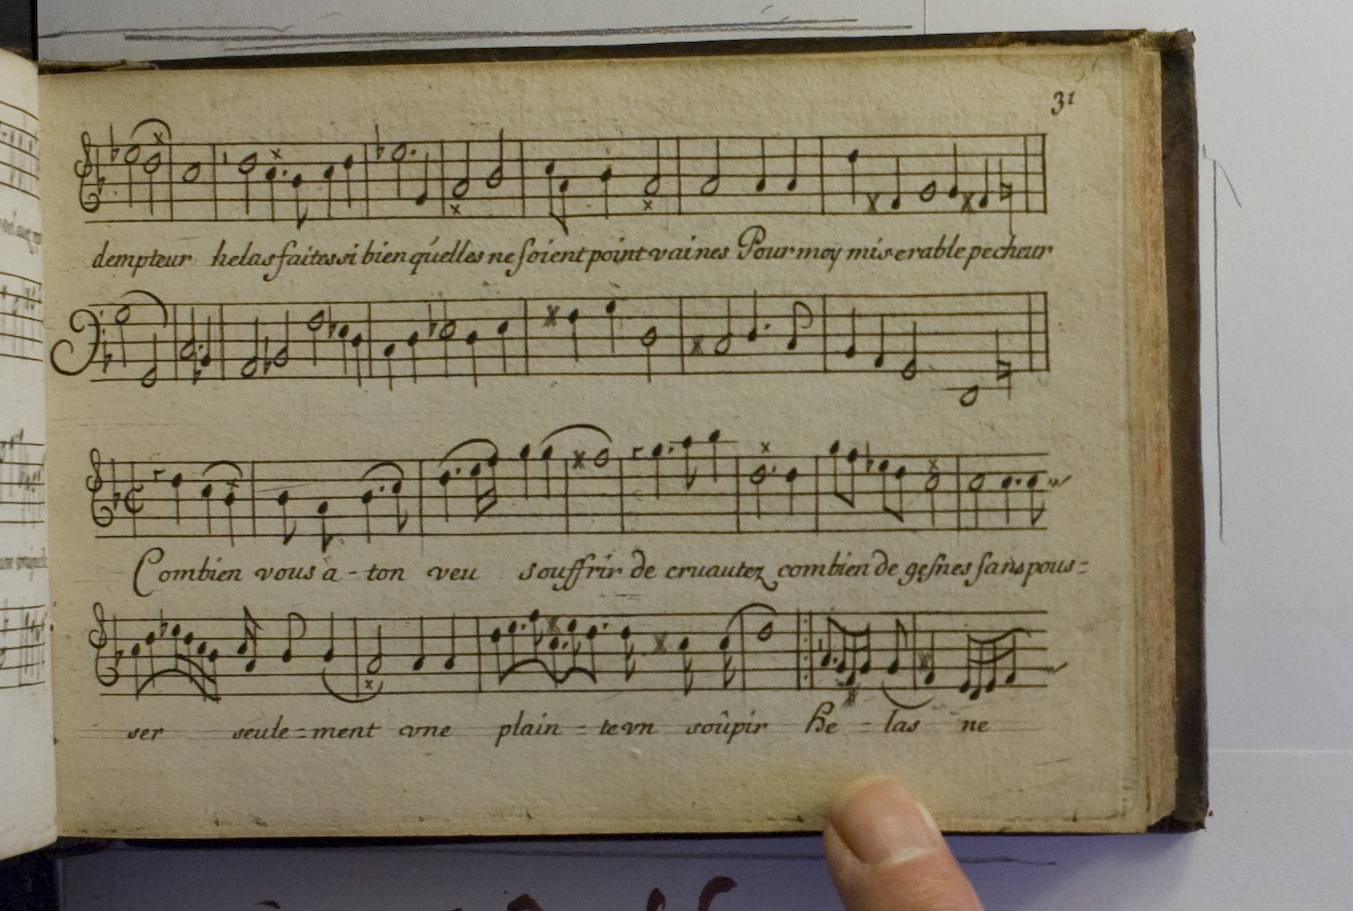 31
dempteur helas faites si bien qu'elles ne soient point vaines Pour moy miserable pecheur
Combien vous a-ton veu souffrir de cruautez combien de gesnes sans pous=
ser seule=ment vne plain=te vn soûpir He=las ne